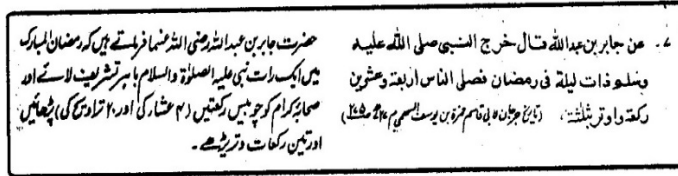 ۷۔ عن جابر بن عبد الله قال خرج النبی صلی الله علیه
وسلم ذات لیلة فی رمضان فصلی الناس اربعة وعشرین
رکعة واوتر بثلثة۔ (تاریخ جرجان لابی قاسم حمزة بن یوسف السهمی م
حضرت جابر بن عبد اللہ رضی اللہ عنہما فرماتے ہیں کہ رمضان المبارک
میں ایک رات نبی علیہ الصلوٰۃ والسلام باہر تشریف لائے اور
صحابہ کرام کو چوبیس رکعتیں (۴ عشار کی اور ۲۰ تراویح کی) پڑھائیں
اور تین رکعات وتر پڑھے۔